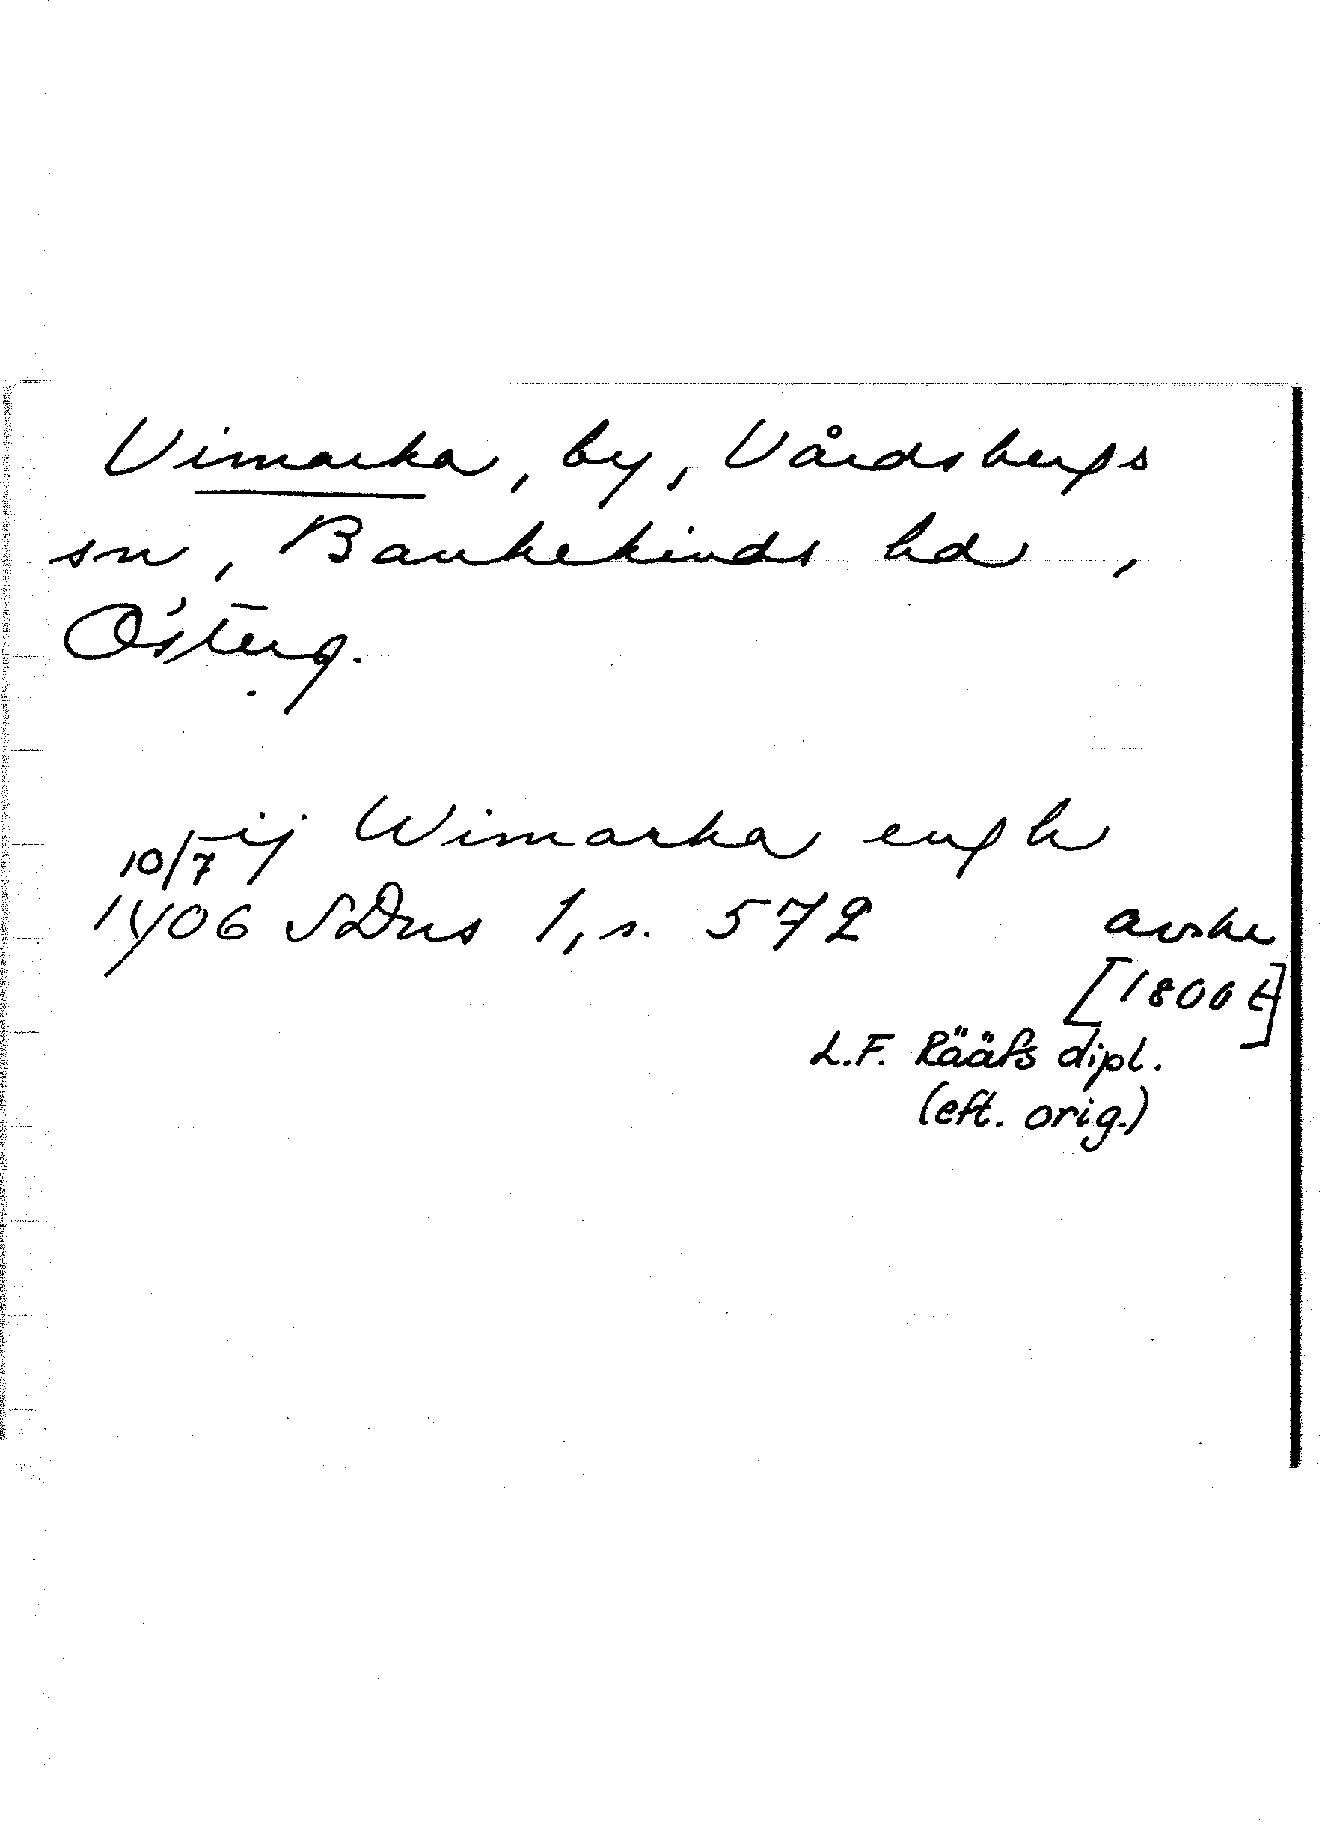 Vimarka, by, Vårdsbergs
sn, Bankekinds hd,
Österg.
ij Wimarka engh
10/7
1406 SDns 1, s. 572 avskr
[1800 t]
L.F. Rääfs dipl.
(eft. orig.)